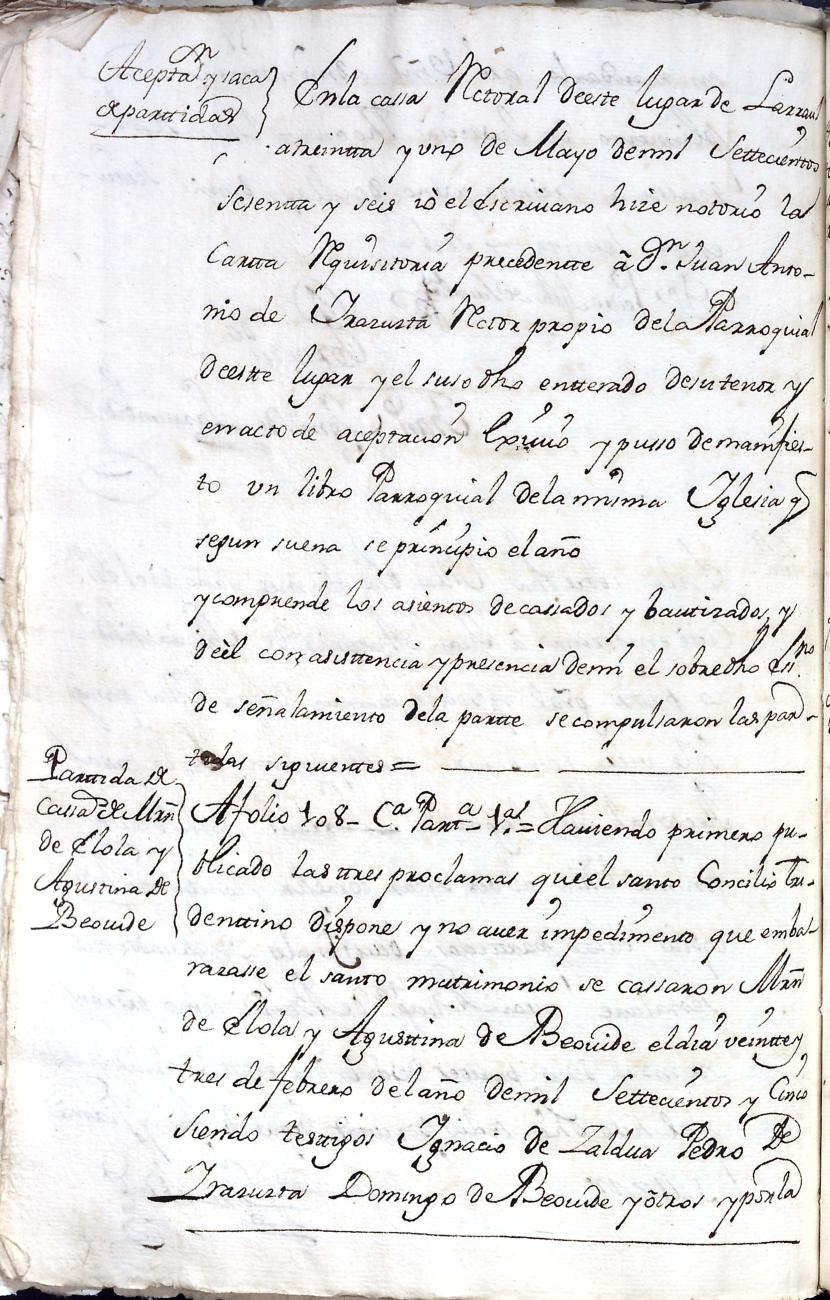 Aceptaⁿ y saca
de parttidas
En la cassa Rectoral de este lugar de Larraul
a treintta y uno de Mayo de mil Settecientos
sesentta y seis io el escrivano hize notorio la
Cartta Requisitoria precedentte â Dⁿ. Juan Anto-
nio de Irazusta Rector propio de la Parroquial
de estte lugar y el susodho entterado de su tenor y
en acto de aceptacion Exivio y pusso de manifies-
to un libro Parroquial de la misma Iglesia q
segun suena se principio el año
y comprende los asientos de cassados y bautizados, y
de èl con assisttencia y presencia de mi el sobredho Essno
de señalamiento de la partte se compulsaron las par-
tidas siguientes =
Parttida de
Cassados de Mrn
de Elola y
Agustina de
Beovide
A folio 108 - Cª. Partª - 1ª. = Haviendo primero pu-
blicado las ttres proclamas que el santo Concilio Tri-
denttino dispone y no aver impedimento que emba-
razasse el santo matrimonio se cassaron Mrn
de Elola y Agusttina de Beovide el dia veintte y
tres de febrero del año de mil Settecientos y Cinco
siendo testtigos Ignacio de Zaldua Pedro De
Irazusta Domingo de Beovide y ôtros y por la